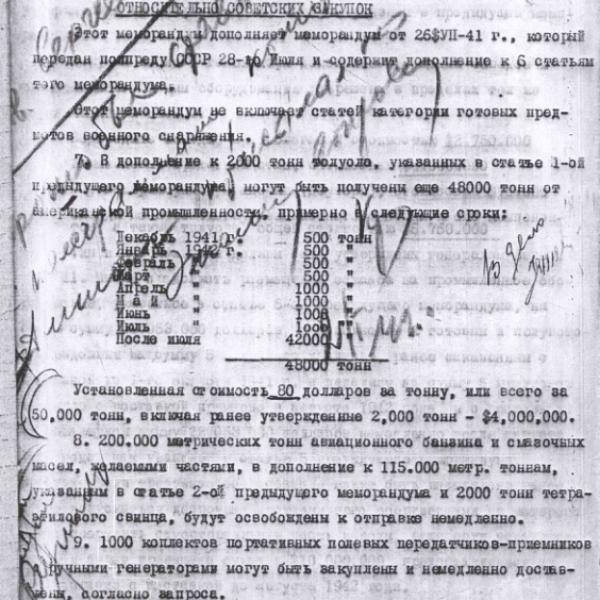 ОТНОСИТЕЛЬНО СОВЕТСКИХ ЗАКУПОК
Этот меморандум дополняет меморандум от 26/УП-41 г., который
передан полпреду СССР 28-го июля и содержит дополнение к 6 статьям
того меморандума.
Этот меморандум не включает статей категории готовых пред-
метов военного снаряжения.
7. В дополнение к 2000 тонн толуоло, указанных в статье 1-ой
предыдущего меморандума, могут быть получены еще 48000 тонн от
американской промышленности, примерно в следующие сроки:
Декабрь 1941 г. 500 тонн
Январь 1942 г. 500 "
Февраль 500 "
Март 500 "
Апрель 1000 "
Май 1000 "
Июнь 1000 "
Июль 1000 "
После июля 42000 "
48000 тонн
Установленная стоимость 80 долларов за тонну, или всего за
50,000 тонн, включая ранее утвержденные 2,000 тонн - $4,000,000.
8. 200.000 метрических тонн авиационного бензина и смазочных
масел, желаемыми частями, в дополнение к 115.000 метр. тоннам,
указанным в статье 2-ой предыдущего меморандума и 2000 тонн тетра-
этилового свинца, будут освобождены к отправке немедленно.
9. 1000 комплектов портативных полевых передатчиков-приемников
с ручными генераторами могут быть закуплены и немедленно достав-
лены, согласно запроса.
В дело